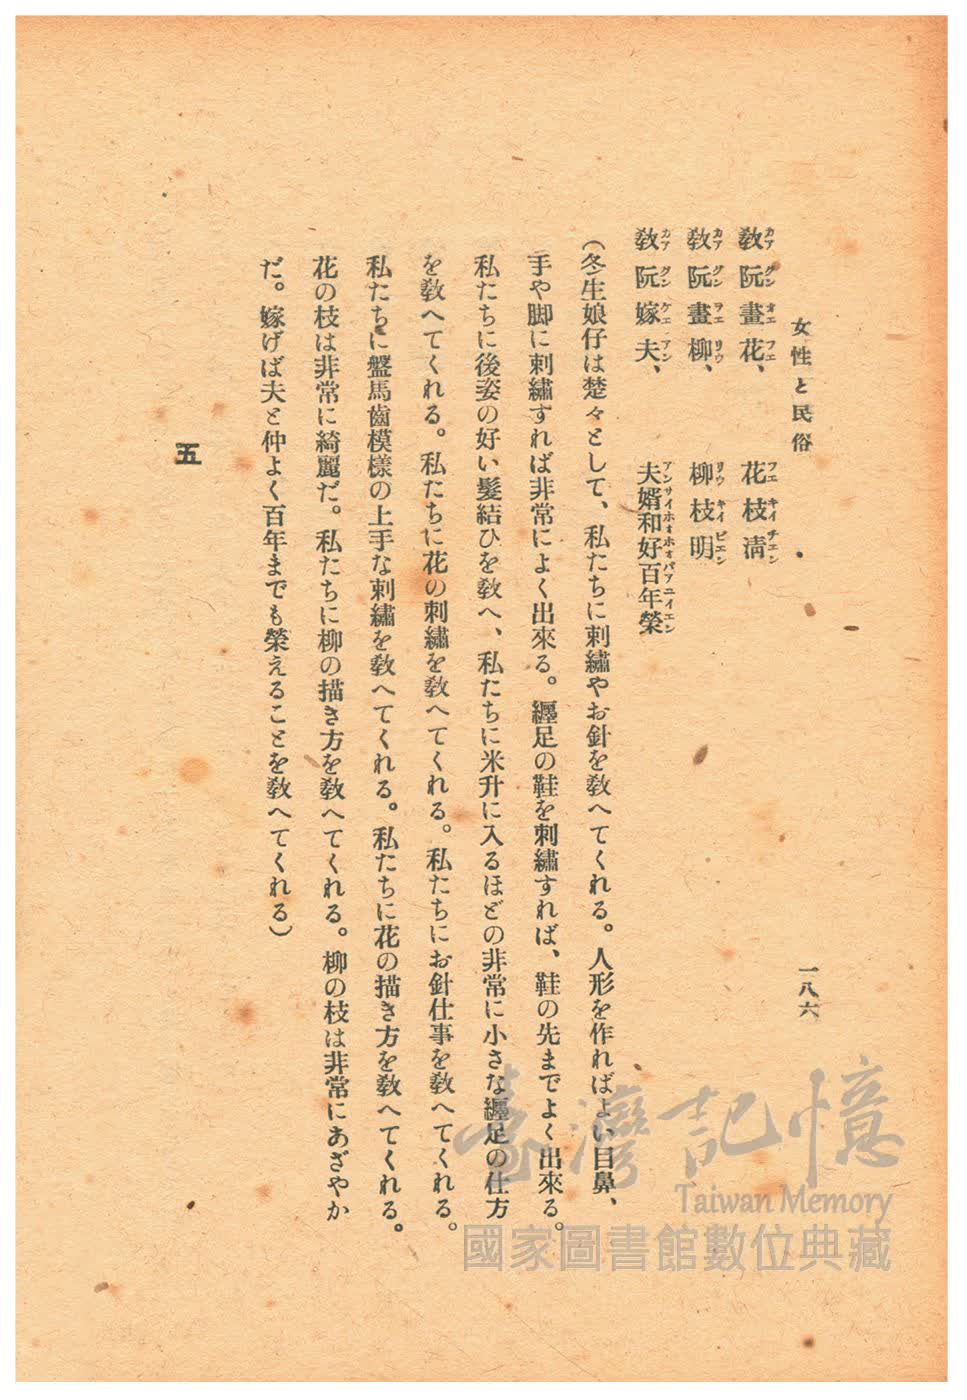 女性と民俗
一八六
教阮畫花、花枝淸
教阮畫柳、柳枝明
教阮嫁夫、夫婿和好百年榮
(冬生娘仔は楚々として、私たちに刺繡やお針を教へてくれる。人形を作ればよい目鼻、
手や脚に刺繡すれば非常によく出來る。纏足の鞋を刺繡すれば、鞋の先までよく出來る。
私たちに後姿の好い髮結ひを教へ、私たちに米升に入るほどの非常に小さな纏足の仕方
を教へてくれる。私たちに花の刺繡を教へてくれる。私たちにお針仕事を教へてくれる。
私たちに盤馬齒模樣の上手な刺繡を教へてくれる。私たちに花の描き方を教へてくれる。
花の枝は非常に綺麗だ。私たちに柳の描き方を教へてくれる。柳の枝は非常にあざやか
だ。嫁げば夫と仲よく百年までも榮えることを教へてくれる)
五
臺灣記憶
Taiwan Memory
國家圖書館數位典藏